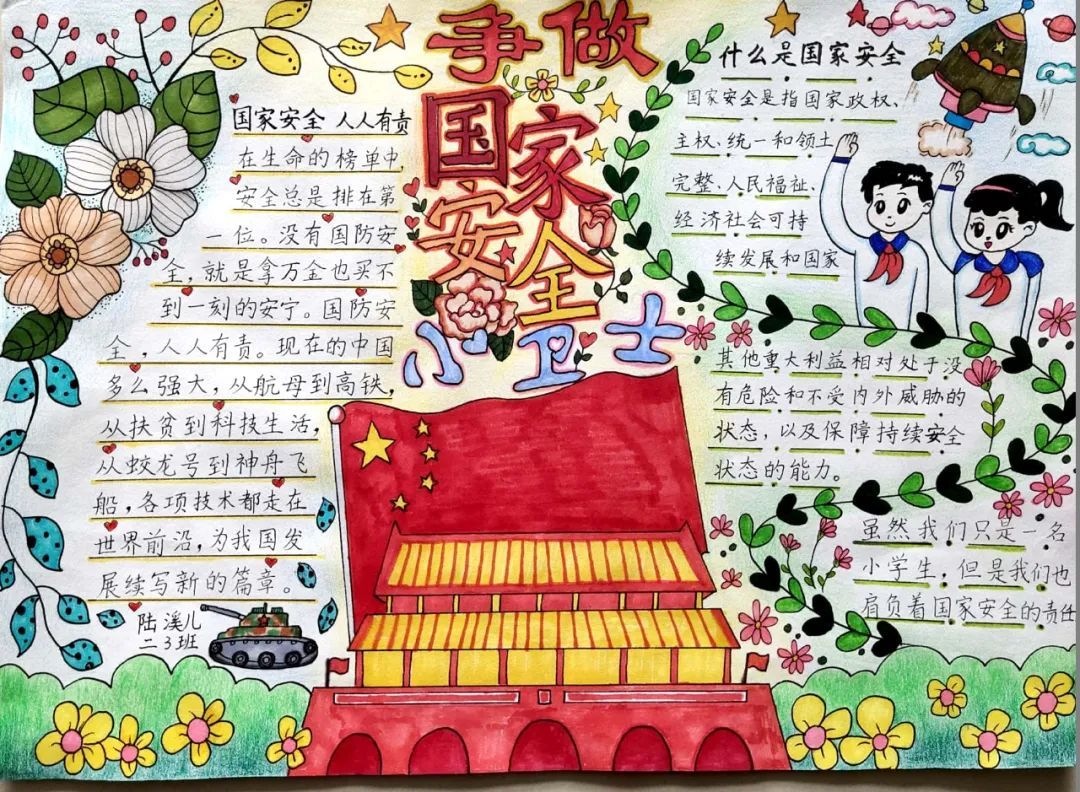 争做
国家
安全
小卫士
国家安全 人人有责
在生命的榜单中,
安全总是排在第
一位。没有国防安
全,就是拿万金也买不
到一刻的安宁。国防安
全,人人有责。现在的中国
多么强大,从航母到高铁,
从扶贫到科技生活,
从蛟龙号到神舟飞
船,各项技术都走在
世界前沿,为我国发
展续写新的篇章。
陆溪儿
二3班
什么是国家安全
国家安全是指国家政权、
主权、统一和领土
完整、人民福祉、
经济社会可持
续发展和国家
其他重大利益相对处于没
有危险和不受内外威胁的
状态,以及保障持续安全
状态的能力。
虽然我们只是一名
小学生,但是我们也
肩负着国家安全的责任